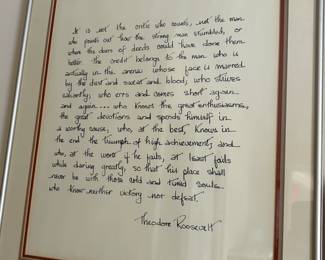 It is not the critic who counts, not the man
who points out how the strong man stumbled, or
where the doers of deeds could have done them
better. The credit belongs to the man who is
actually in the arena whose face is marred
by the dust and sweat and blood, who strives
valiantly; who errs and comes short again
and again... who knows the great enthusiasms,
the great devotions and spends himself in
a worthy cause, who, at the best, knows in
the end the triumph of high achievement, and
who, at the worst if he fails, at least fails
while daring greatly, so that his place shall
never be with those cold and timid souls
who know neither victory nor defeat.
Theodore Roosevelt